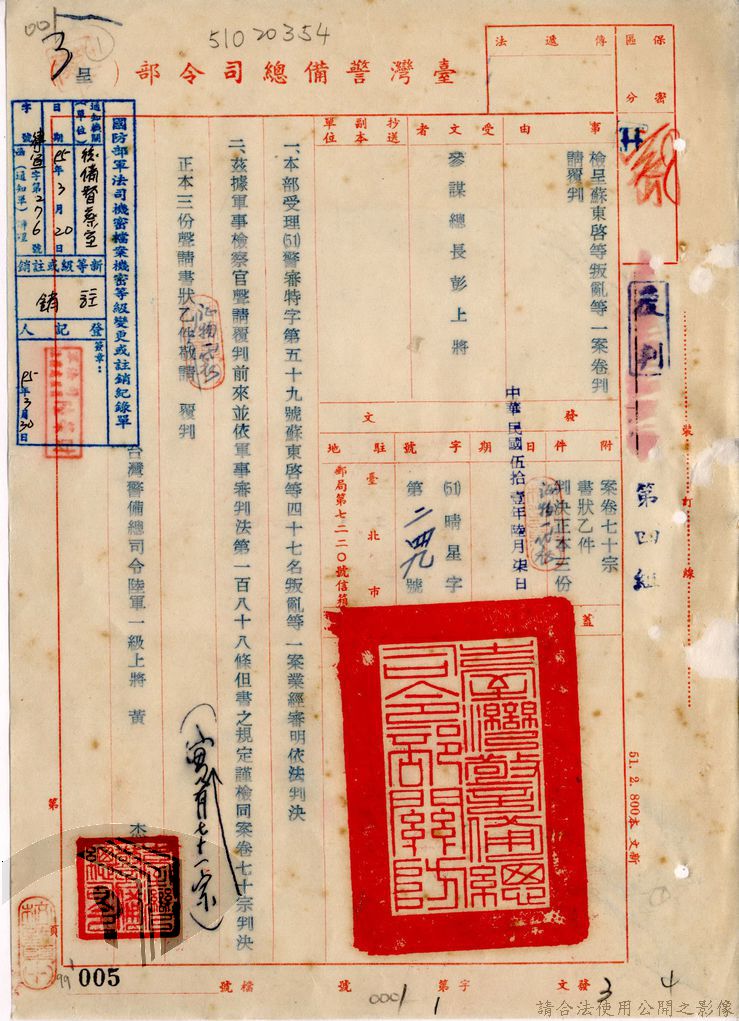 001
3
呈
51020354
臺灣警備總司令部（
）
保密區分
傳遞法
事由
檢呈蘇東啓等叛亂等一案卷判
請覆判
受文者
參謀總長彭上將
抄送副本單位
發文
附件
案卷七十宗
書狀乙件
判決正本三份
日期
中華民國伍拾壹年陸月柒日
字號
(51)晴星字
第二四九號
駐地
臺北市
郵局第七二二〇號信箱
蓋
覆判
第四組
裝訂線
一、本部受理(51)警審特字第五十九號蘇東啓等四十七名叛亂等一案業經審明依法判決
二、茲據軍事檢察官聲請覆判前來並依軍事審判法第一百八十八條但書之規定謹檢同案卷七十宗判決
正本三份聲請書狀乙件敬請 覆判
台灣警備總司令陸軍一級上將 黃 杰
臺灣警備總司令部關防
國防部軍法司機密檔案機密等級變更或註銷紀錄單
通知機關(單位)
後備督察室
日期
95年3月20日
字號
字第276號
(通知單)
新等級或註銷
註銷
登記人
簽章：
95年3月30日
51. 2. 800本 文新
第
頁
99
005
檔號
0001
1
發文
字第
號
3
4
請合法使用公開之影像